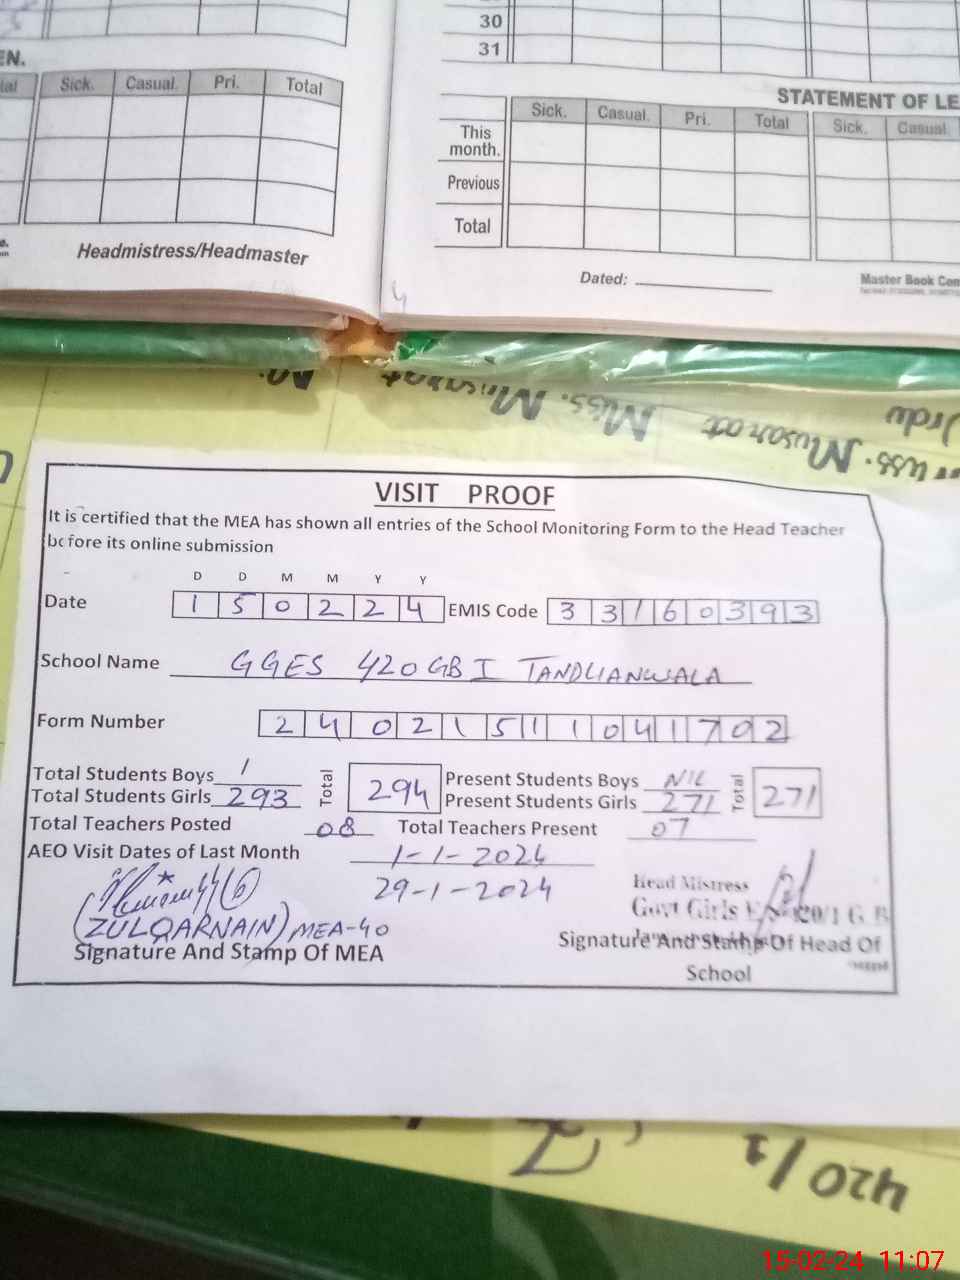 30
31
EN.
tal Sick. Casual. Pri. Total
Headmistress/Headmaster
STATEMENT OF LE
Sick. Casual. Pri. Total Sick. Casual
This month.
Previous
Total
Dated:
Master Book Com
Miss. Musarat
Miss. Musarat
VISIT PROOF
It is certified that the MEA has shown all entries of the School Monitoring Form to the Head Teacher
before its online submission
D D M M Y Y
Date 1 5 0 2 2 4 EMIS Code 3 3 1 6 0 3 9 3
School Name GGES 420GB I TANDLIANWALA
Form Number 2 4 0 2 1 5 1 1 0 4 1 7 0 2
Total Students Boys 1 Total 294 Present Students Boys NIL Total 271
Total Students Girls 293 Present Students Girls 271
Total Teachers Posted 08 Total Teachers Present 07
AEO Visit Dates of Last Month 1-1-2024
29-1-2024
Head Mistress
Govt Girls 420/1 G.B
(ZULQARNAIN) MEA-40
Signature And Stamp Of MEA
Signature And Stamp Of Head Of
School
420/1
15-02-24 11:07